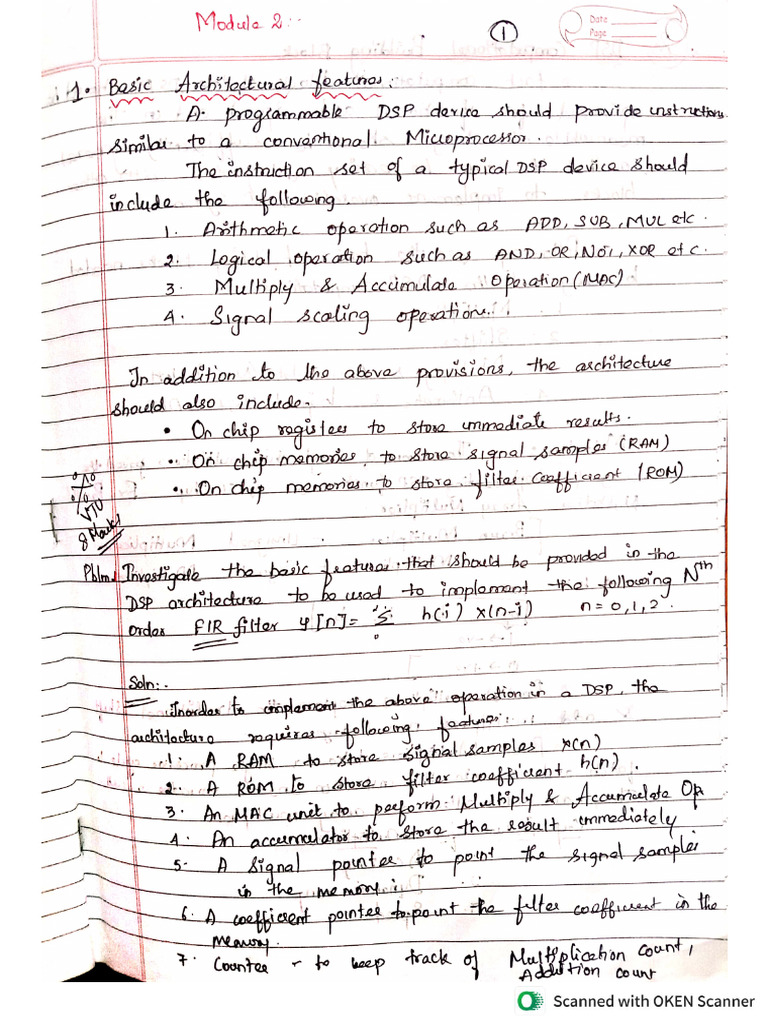 Module 2:-
1
Date
Page
1. Basic Architectural features:
A programmable DSP device should provide instructions
similar to a conventional Microprocessor.
The instruction set of a typical DSP device should
include the following
1. Arithmetic operation such as ADD, SUB, MUL etc.
2. Logical operation such as AND, OR, NOT, XOR etc.
3. Multiply & Accumulate Operation (MAC)
4. Signal scaling operation.
In addition to the above provisions, the architecture
should also include.
• On chip registers to store immediate results.
• On chip memories to store signal samples (RAM)
• On chip memories to store filter coefficient (ROM)
VTU
8 Marks
Pblm: Investigate the basic features that should be provided in the
DSP architecture to be used to implement the following Nth
order FIR filter y[n] = Σ h(i) x(n-i) n = 0,1,2.
Soln:-
Inorder to implement the above operation in a DSP, the
architecture requires following features:
1. A RAM to store signal samples x(n)
2. A ROM to store filter coefficient h(n).
3. An MAC unit to perform Multiply & Accumulate Op
4. An accumulator to store the result immediately
5. A signal pointer to point the signal samples
in the memory.
6. A coefficient pointer to point the filter coefficient in the
memory.
7. Counter - to keep track of Multiplication count,
Addition count
Scanned with OKEN Scanner